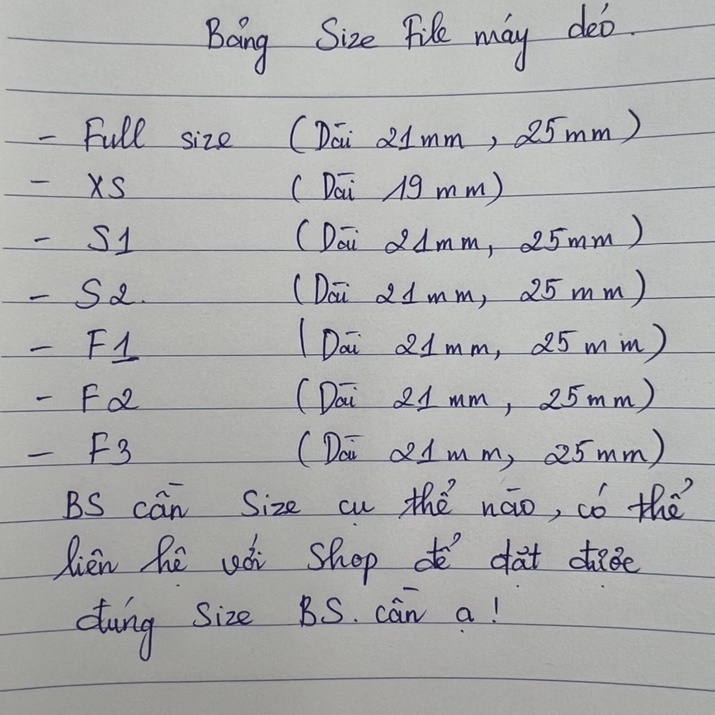 Bảng Size File máy dẻo.
- Full size (Dài 21mm, 25mm)
- XS (Dài 19mm)
- S1 (Dài 21mm, 25mm)
- S2. (Dài 21mm, 25mm)
- F1 (Dài 21mm, 25mm)
- F2 (Dài 21mm, 25mm)
- F3 (Dài 21mm, 25mm)
BS cần Size cụ thể nào, có thể
liên hệ với Shop để đặt được
đúng Size BS. cần ạ!